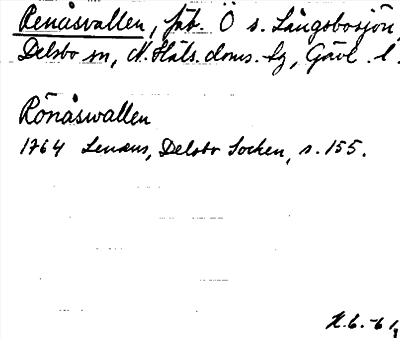 Renåsvallen, fäb. Ö s. Långsbosjön
Delsbo sn, N. Häls. doms. lg, Gävl. l.
Rönåswallen
1764 Lenæus, Delsbo Socken, s. 155.